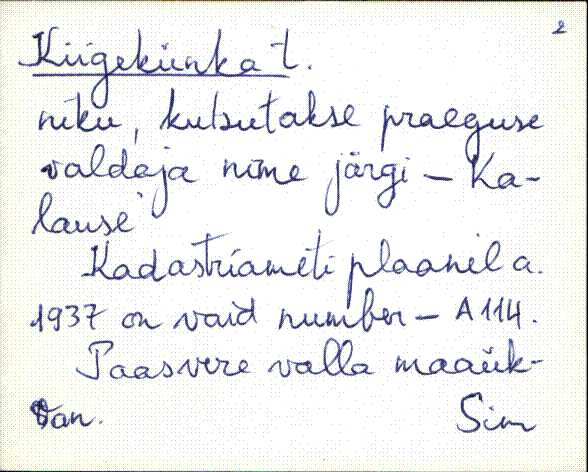 2
Kiigekünka t.
niku, kutsutakse praeguse
valdaja nime järgi – Ka-
lause
Kadastriameti plaanil a.
1937 on vaid number – A 114.
Paasvere valla maaük-
Sim